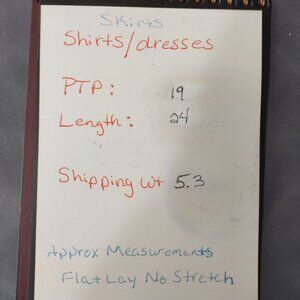 Skirts
Shirts/dresses
PTP: 19
Length: 24
Shipping wt 5.3
Approx Measurements
Flat Lay No Stretch